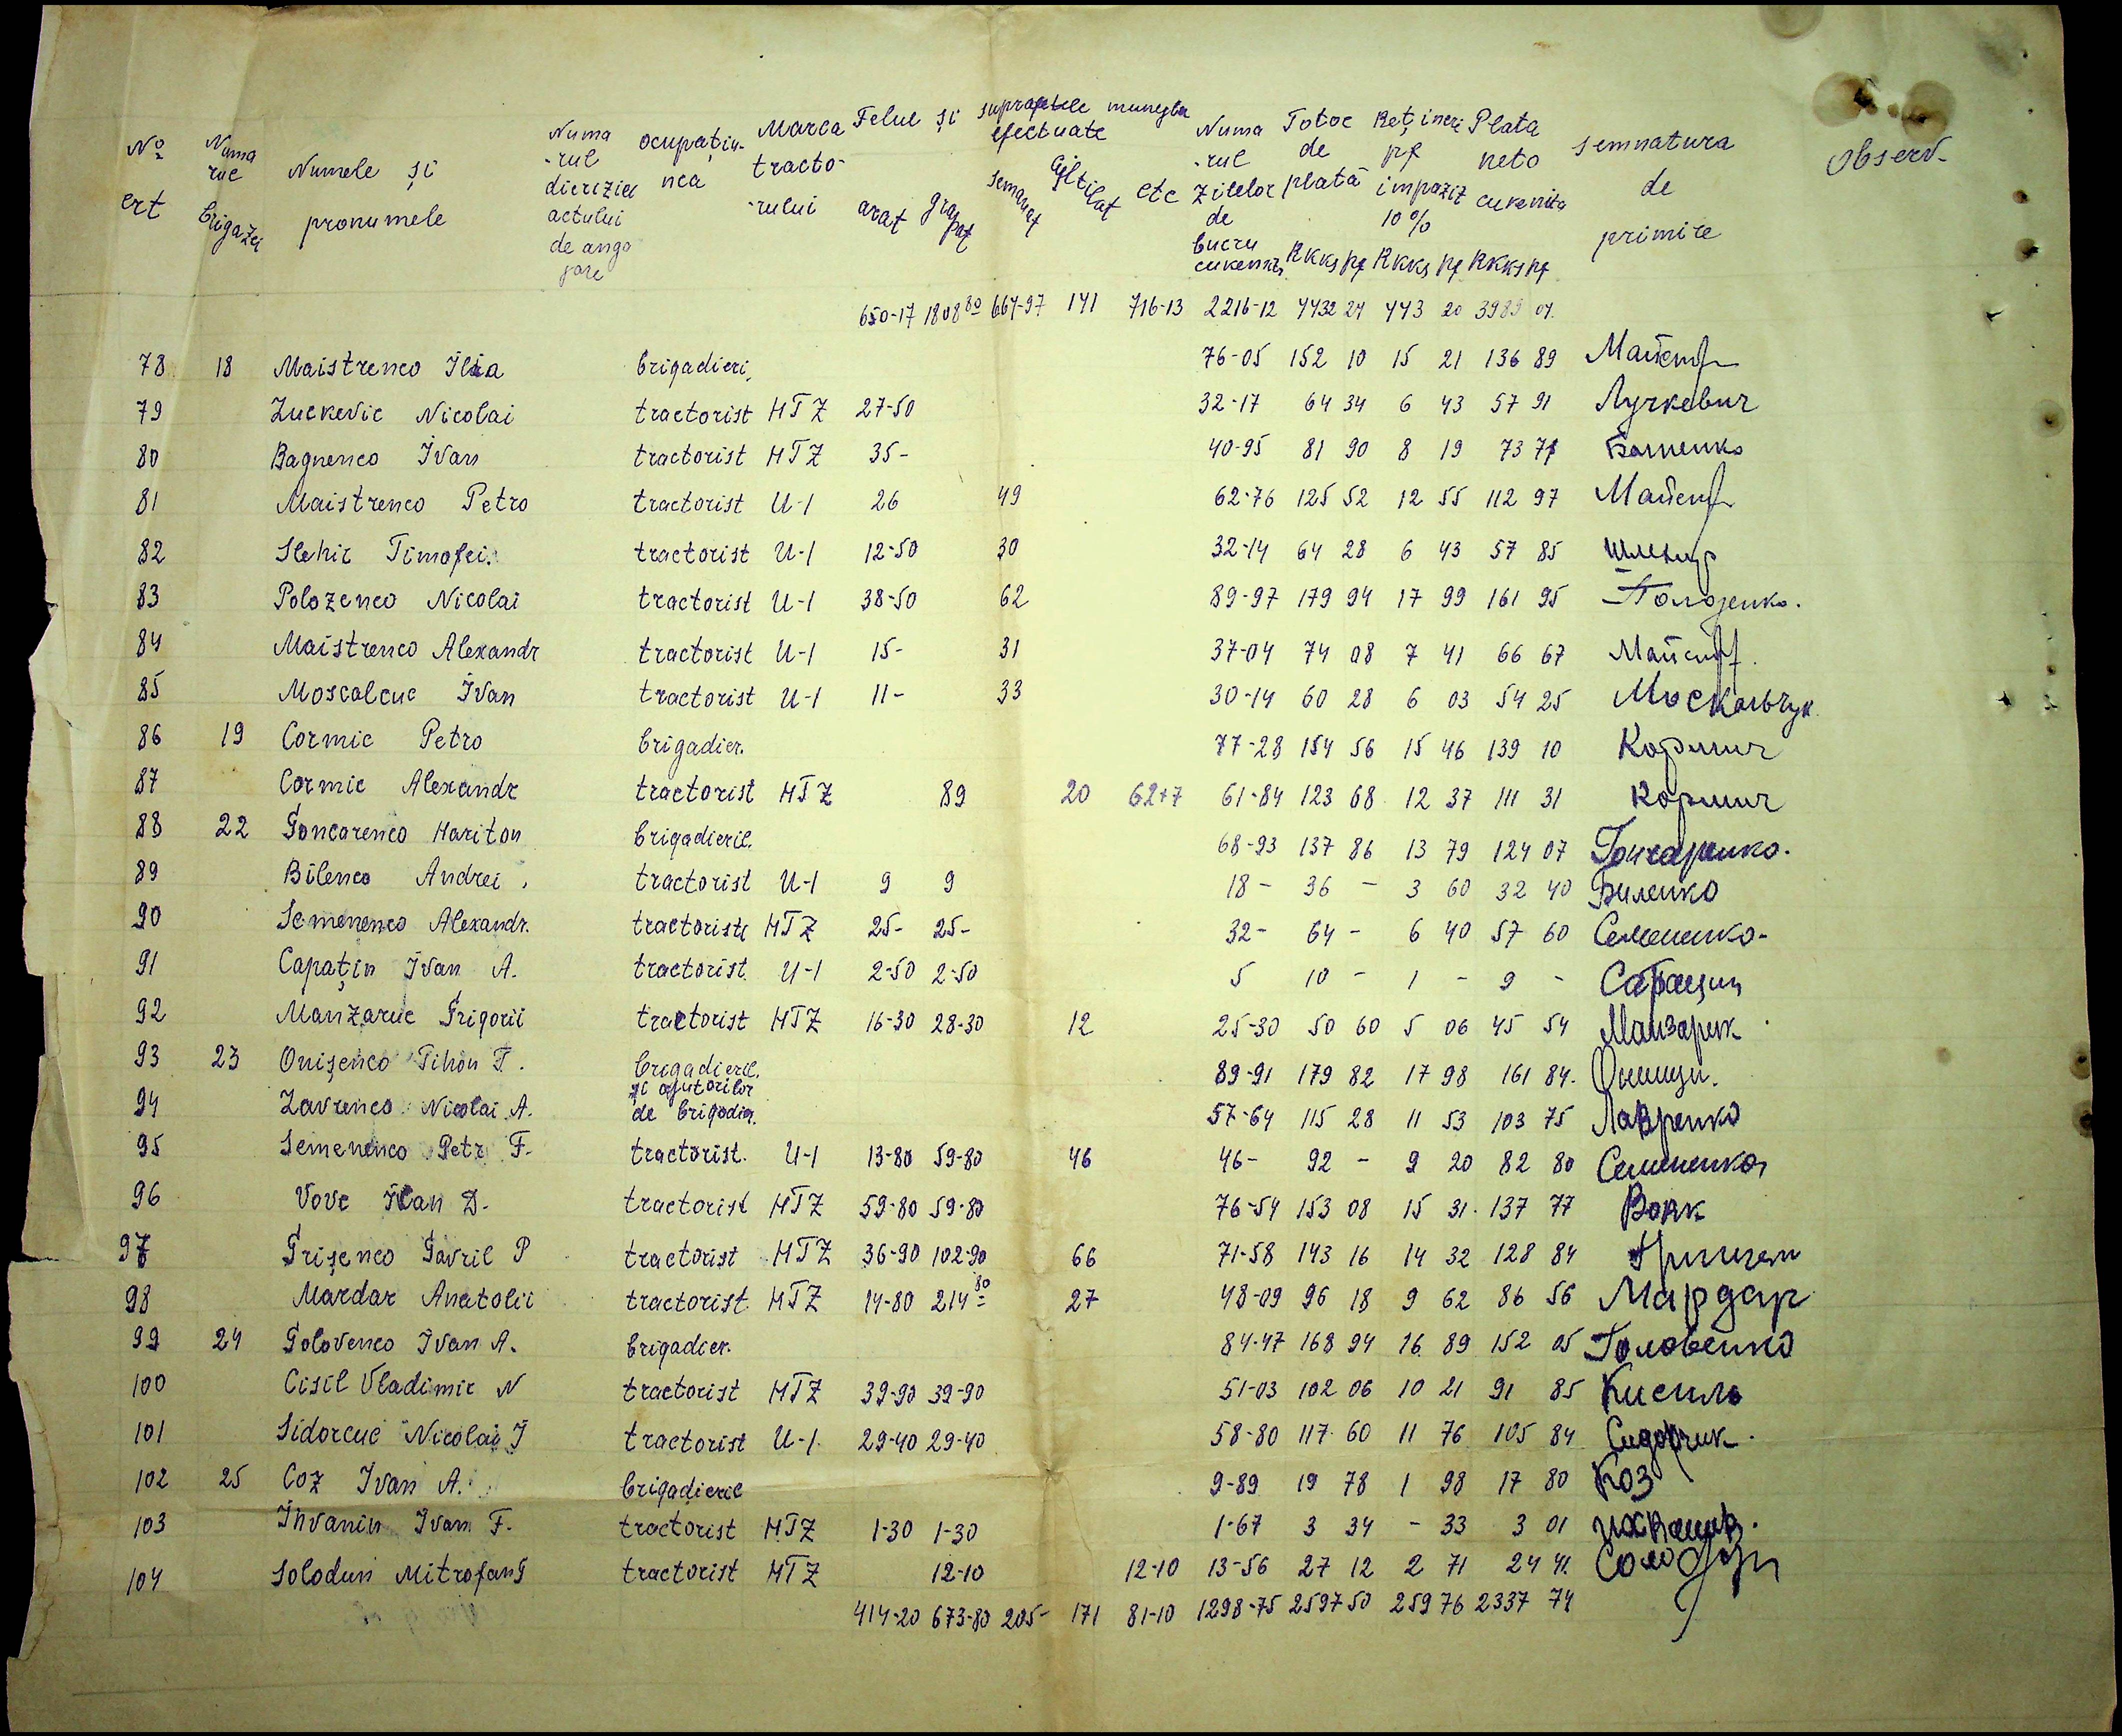 № crt Numa rul brigazei Numele și pronumele Numa -rul actului de anga jare ocupațiu- nea Marca tracto- rului Felul și efectuate arat gra pat semanat etc Numa -rul zilelor de lucru Totoc de plată Rkks pf Rețineri pf impozit 10% Rkks pf Plata neto cuvenita Rkks pf semnatura de primire observ-
650-17 1808 80 664-97 141 716-13 2216-12 4432 24 443 20 3989 04.
78 18 Maistrenco Ilia brigadieri. 76-05 152 10 15 21 136 89 Майстр
79 Luckevic Nicolai tractorist HTZ 27-50 32-17 64 34 6 43 57 91 Лучкевич
80 Bagnenco Ivan tractorist HTZ 35- 40-95 81 90 8 19 73 71
81 Maistrenco Petro tractorist U-1 26 49 62-76 125 52 12 55 112 97 Майстр
82 Slehic Timofei. tractorist U-1 12-50 30 32-14 64 28 6 43 57 85
83 Polozenco Nicolai tractorist U-1 38-50 62 89-97 179 94 17 99 161 95 Положенко.
84 Maistrenco Alexandr tractorist U-1 15- 31 37-04 74 08 7 41 66 67
85 Moscalcuc Ivan tractorist U-1 11- 33 30-14 60 28 6 03 54 25 Москальчук
86 19 Cormic Petro brigadier. 77-28 154 56 15 46 139 10 Кормич
87 Cormic Alexandr tractorist HTZ 89 20 62+7 61-84 123 68 12 37 111 31 Кормич
88 22 Goncarenco Hariton brigadieril. 68-93 137 86 13 79 124 07 Гончаренко.
89 Bilenco Andrei tractorist U-1 9 9 18- 36 - 3 60 32 40 Биленко
90 Semenenco Alexandr. tractorist HTZ 25- 25- 32- 64 - 6 40 57 60 Семененко-
91 Capațin Ivan A. tractorist U-1 2-50 2-50 5 10 - 1 - 9 -
92 Manzaruc Grigorii tractorist HTZ 16-30 28-30 12 25-30 50 60 5 06 45 54 Манзарук
93 23 Onișenco Tihon T. brigadieril. 89-91 179 82 17 98 161 84.
și ajutorilor
94 Lavrenco Nicolai A. de brigadier. 57-64 115 28 11 53 103 75 Лавренко
95 Semenenco Petr F. tractorist. U-1 13-80 59-80 46 46- 92 - 9 20 82 80 Семененко
96 Vovc Ivan D. tractorist HTZ 59-80 59-80 76-54 153 08 15 31. 137 77 Вовк
97 Grișenco Gavril P tractorist HTZ 36-90 102-90 66 71-58 143 16 14 32 128 84
98 Mardar Anatolii tractorist HTZ 14-80 214 80 27 48-09 96 18 9 62 86 56 Мардар
99 24 Golovenco Ivan A. brigadier. 84-47 168 94 16 89 152 05 Головенко
100 Cisil Vladimir N tractorist HTZ 39-90 39-90 51-03 102 06 10 21 91 85 Кисиль
101 Sidorcuc Nicolai I tractorist U-1 29-40 29-40 58-80 117 60 11 76 105 84 Сидорчук.
102 25 Coz Ivan A. brigadieril 9-89 19 78 1 98 17 80 Коз
103 Ihvanin Ivan F. tractorist HTZ 1-30 1-30 1-67 3 34 - 33 3 01
104 Solodun Mitrofan G tractorist HTZ 12-10 12-10 13-56 27 12 2 71 24 41. Солодун
414-20 673-80 205- 171 81-10 1298-75 2597 50 259 76 2337 74